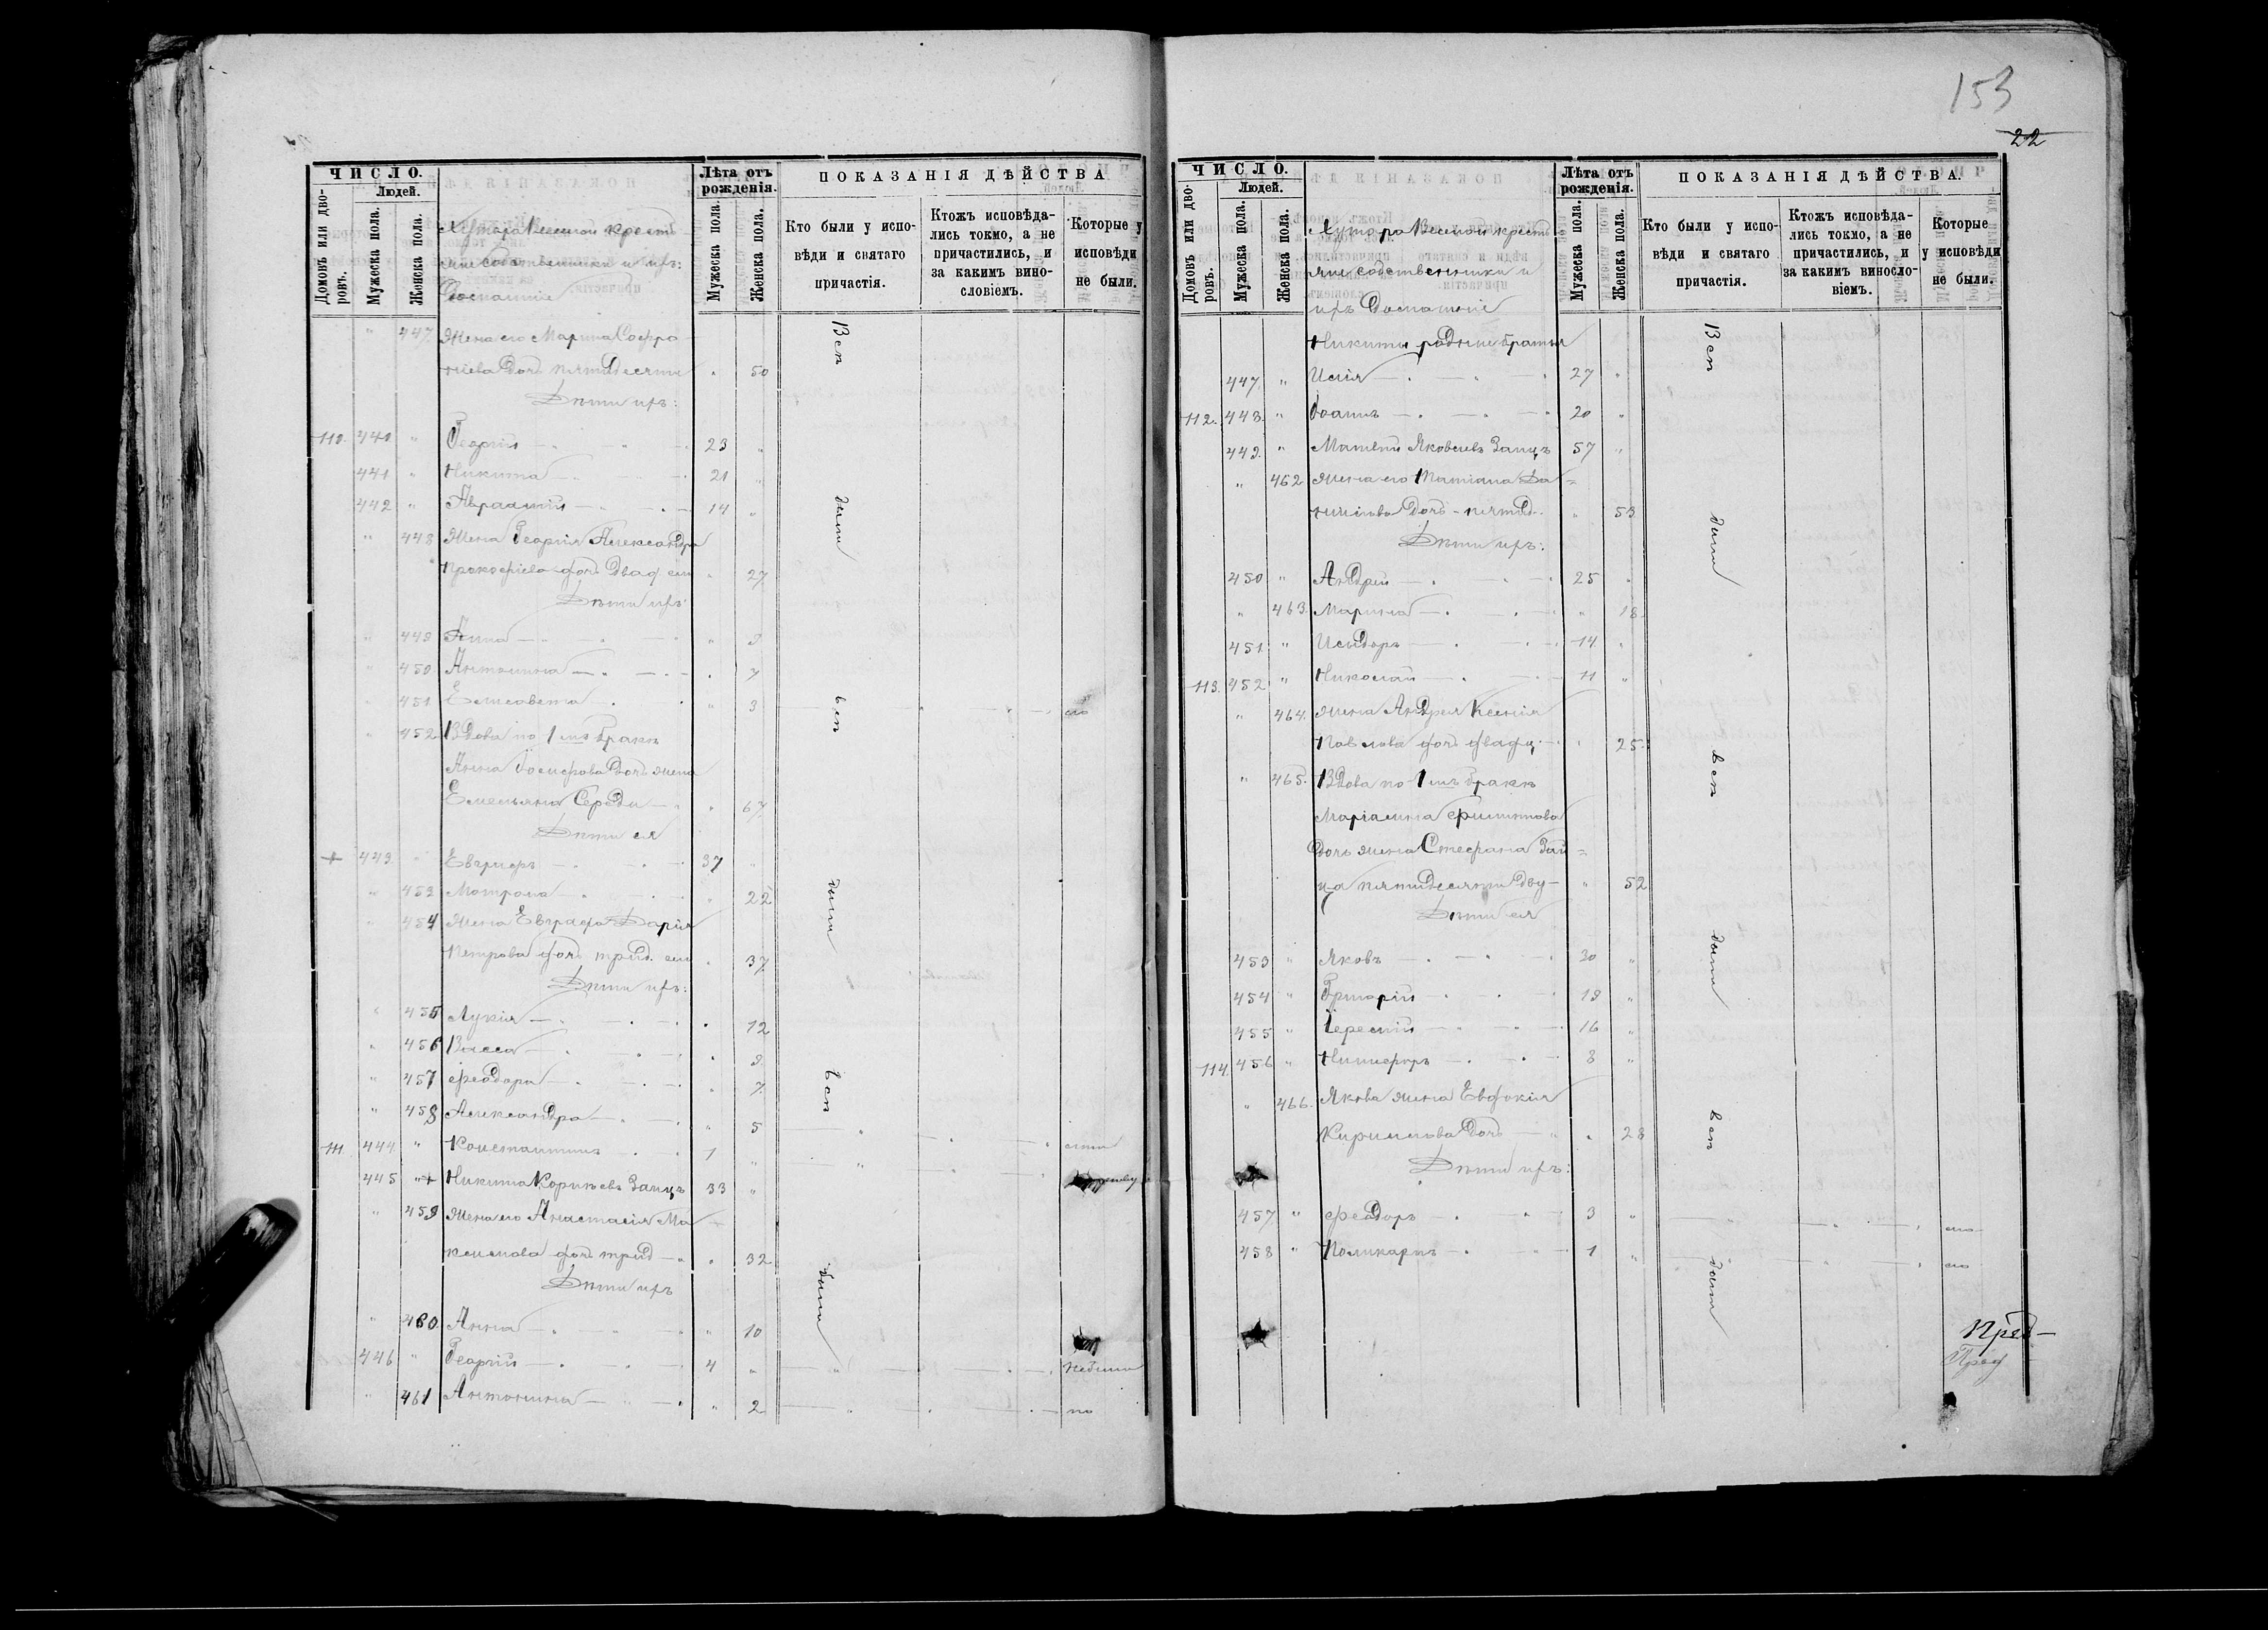 153
22
ЧИСЛО.
Людей.
Домовъ или дворовъ.
Мужеска пола.
Женска пола.
Лѣта отъ рожденія.
Мужеска пола.
Женска пола.
ПОКАЗАНІЯ ДѢЙСТВА
Кто были у исповѣди и святаго причастія.
Ктожъ исповѣдались токмо, а не причастились, и за какимъ винословіемъ.
Которые у исповѣди не были.
Хутора крестъ
яне собственники и ихъ
Домашніе
" 447 Жена его Марина Софро
ніева дочь пятидесяти " 50
Дѣти ихъ:
110. 440 " Георгій 23 "
441 " Никита 21 "
442 " 14 "
" 448 Жена Георгія Александра
Прокофіева доч двад 27
Дѣти ихъ
" 449 Анна " 9
450 Антонина " 7
451 Елисавета " 3
" 452 Вдова по 1мъ бракѣ
Анна Іосифова дочь жена
Емельяна Середы " 67
Дѣти ея
+ 443 " Евграфъ 37 "
" 453 Матрона " 22
454 Жена Евграфа Дарія
Петрова доч трид. 37
Дѣти ихъ:
455 Лукія 12
" 456 Васса 9
" 457 Феодора 7
" 458 Александра " 5
111 444 " Константинъ 1 "
445 "+ Никита Корнѣевъ Заицъ 33 "
" 459 Жена его Анастасія Ма
ксимова доч трид 32
Дѣти ихъ
" 460 Анна " 10
446 " Георгій 4 "
" 461 Антонина " 2
Всѣ
были
всѣ
были
всѣ
были
ЧИСЛО.
Людей.
Домовъ или дворовъ.
Мужеска пола.
Женска пола.
Лѣта отъ рожденія.
Мужеска пола.
Женска пола.
ПОКАЗАНІЯ ДѢЙСТВА.
Кто были у исповѣди и святаго причастія.
Ктожъ исповѣдались токмо, а не причастились, и за какимъ винословіемъ.
Которые у исповѣди не были.
Хутора крестъ
яне собственники и
ихъ Домашніе
Никиты родные братья
447 " Исаія 27 "
112. 448 " Іоаннъ 20 "
449 " Матвѣй Яковлевъ Заицъ 57 "
" 462 Жена его Татіана Да=
ниилова дочь пятид " 53
Дѣти ихъ:
450 " Андрей 25 "
" 463 Марина " 18
451 " Исидоръ 14 "
113. 452 " Николай 11 "
" 464 Жена Андрея Ксенія
Павлова доч двадц " 25
" 465 Вдова по 1мъ бракѣ
Маріамна Филиппова
дочь жена Стефана Заи=
ца пятидесяти дву " 52
Дѣти ея
453 " Яковъ 30 "
454 " Григорій 19 "
455 " Іеремій 16 "
114. 456 " Никифоръ 8 "
" 466. Якова жена Евдокія
Кириллова дочь " 28
Дѣти ихъ:
457 " Феодоръ 3 "
458 " Поликарпъ 1 "
Всѣ
были
всѣ
были
всѣ
были
Пред—